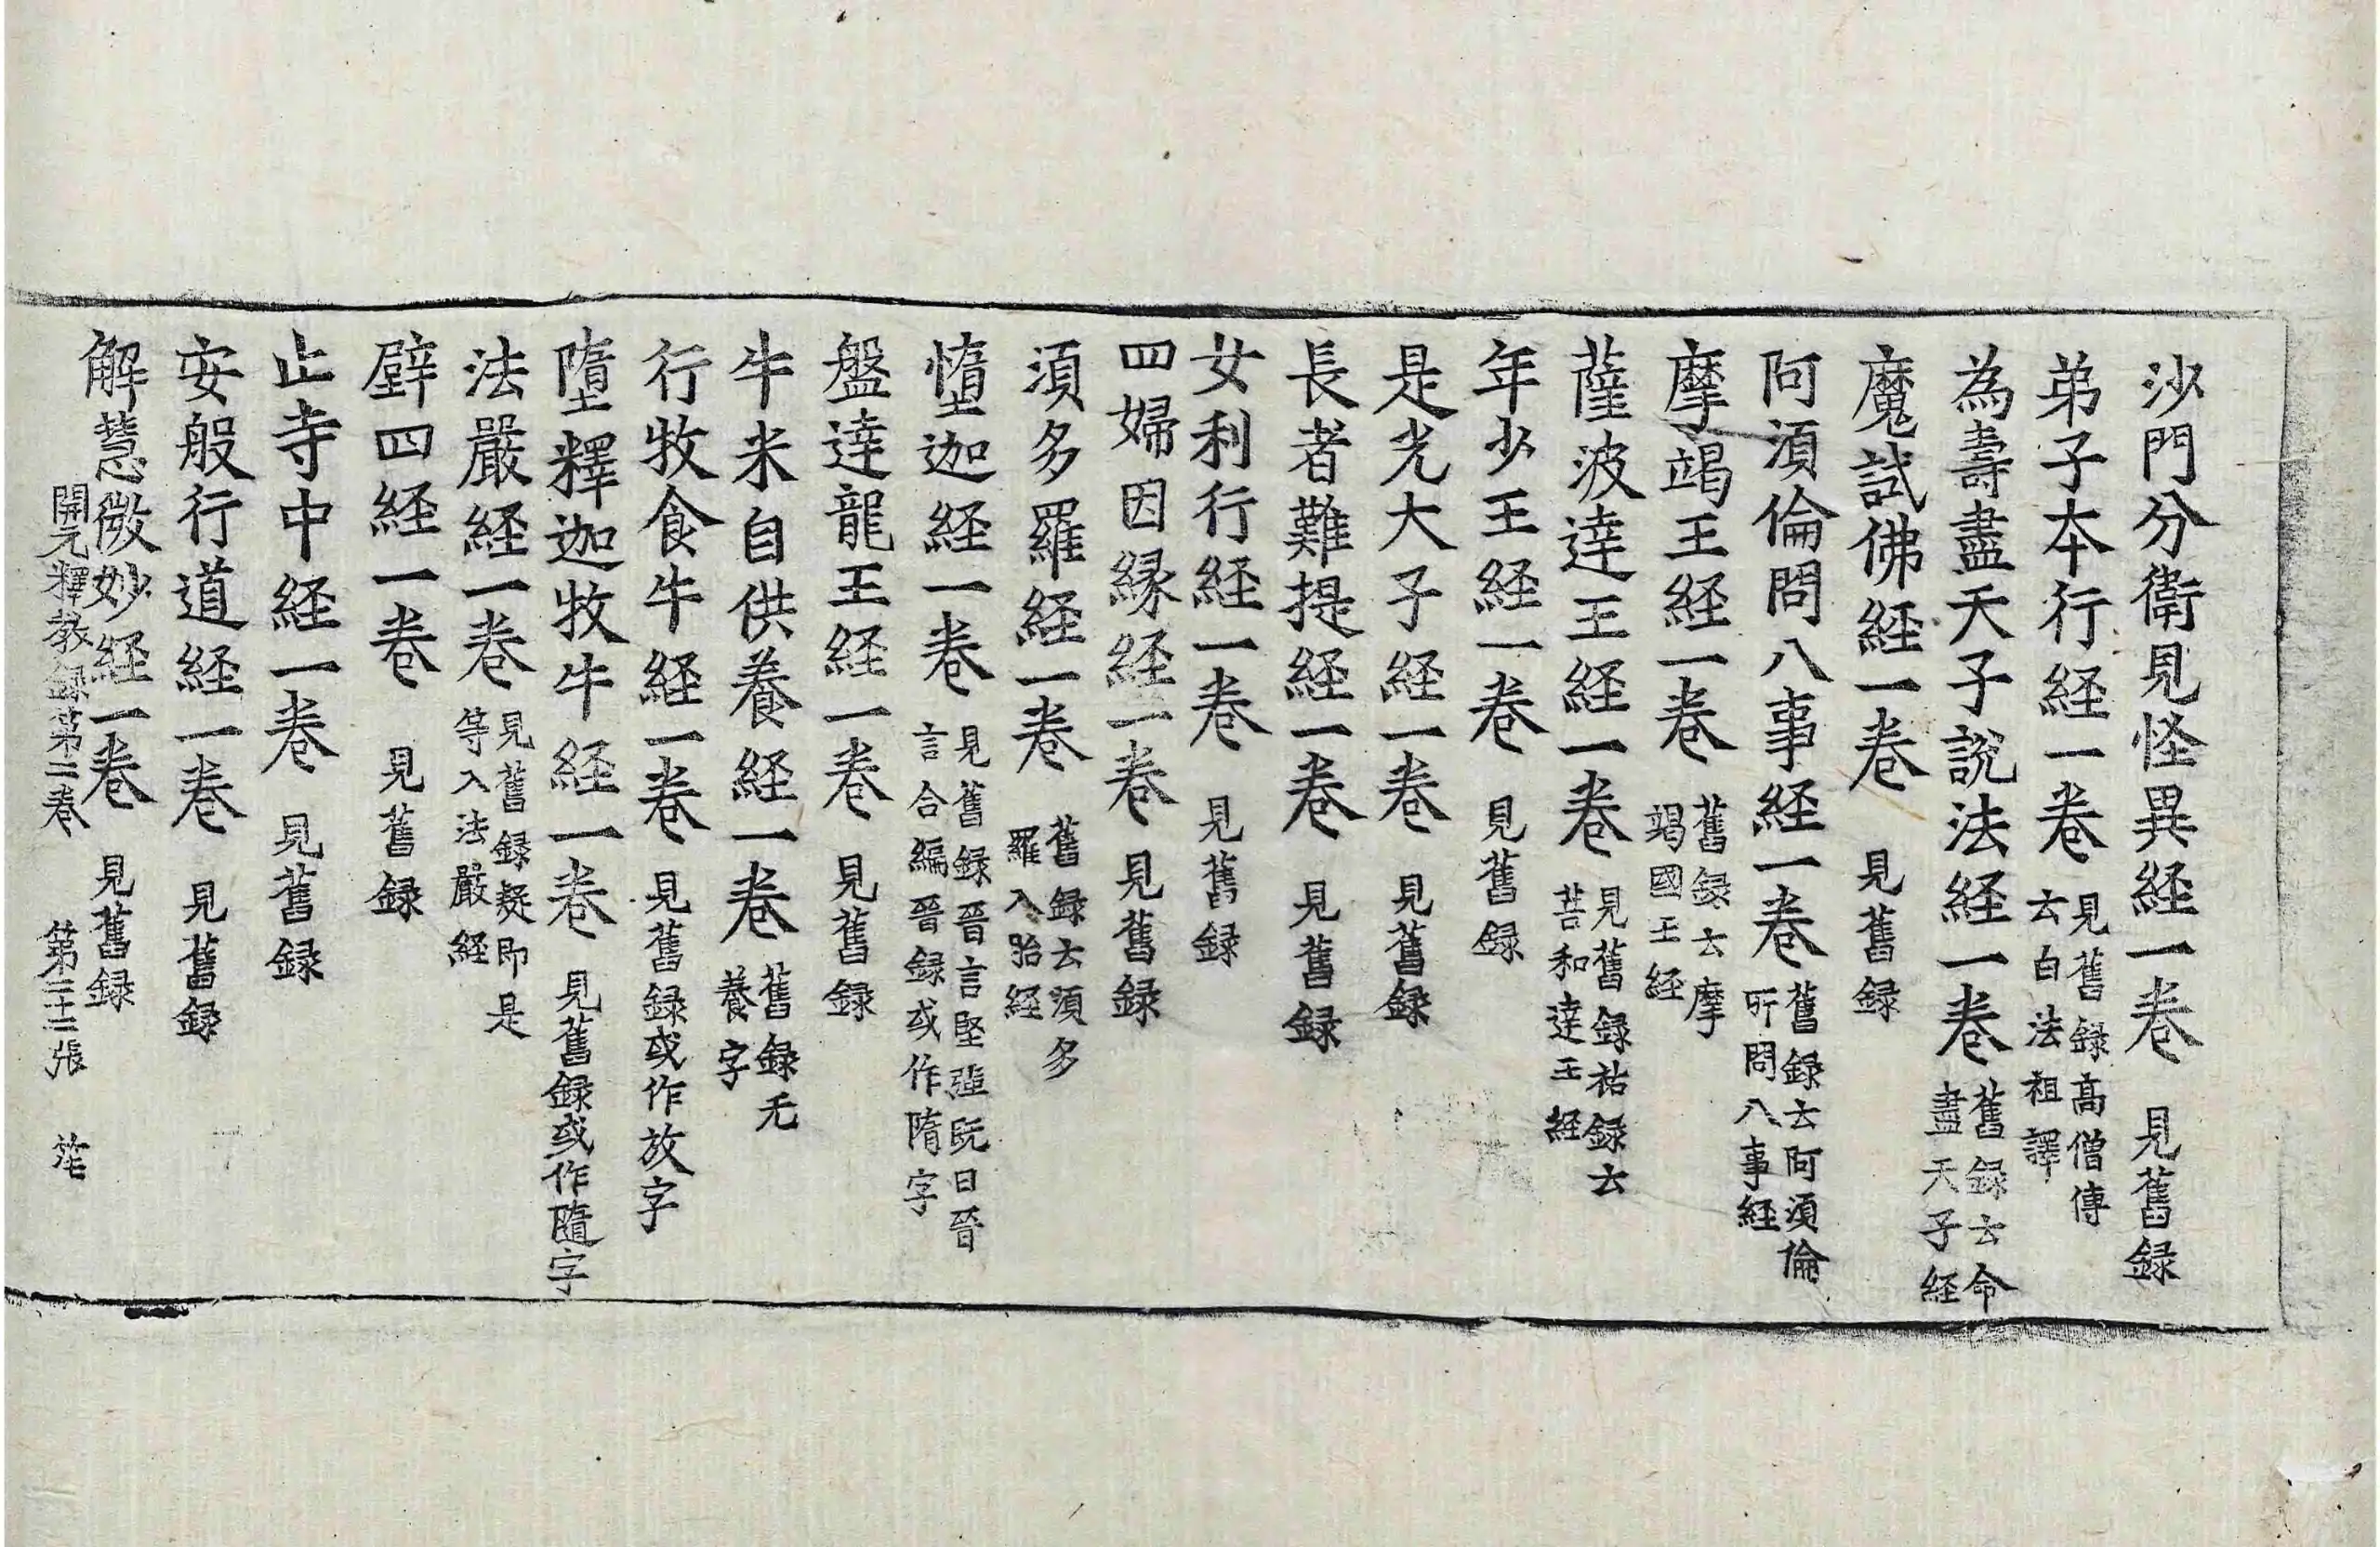 沙門分衛見怪異経一卷 見舊録
弟子本行経一卷 見舊録高僧傳云白法祖譯
為壽盡天子說法経一卷 舊録云命盡天子経
魔試佛経一卷 見舊録
阿湏倫問八事経一卷 舊録云阿湏倫所問八事経
摩竭王経一卷 舊録云摩竭國王経
薩波達王経一卷 見舊録祐録云菩和達王経
年少王経一卷 見舊録
是光大子経一卷 見舊録
長者難提経一卷 見舊録
女利行経一卷 見舊録
四婦因縁経一卷 見舊録
湏多羅経一卷 舊録云湏多羅入胎経
憜迦経一卷 見舊録晉言堅強旣曰晉言合編晉録或作隋字
盤達龍王経一卷 見舊録
牛米自供養経一卷 舊録无養字
行牧食牛経一卷 見舊録或作放字
墮釋迦牧牛経一卷 見舊録或作隨字
法嚴経一卷 見舊録疑即是等入法嚴経
壁四経一卷 見舊録
止寺中経一卷 見舊録
安般行道経一卷 見舊録
解慧微妙経一卷 見舊録
開元釋教録第二卷 第二十二張